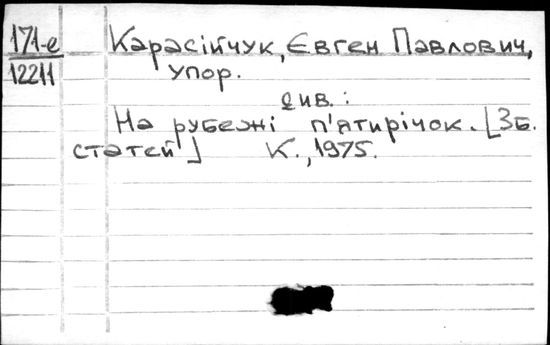 171-е
12211
Карасійчук, Євген Павлович,
упор.
див.:
На рубежі п'ятирічок. [Зб.
статей] К., 1975.